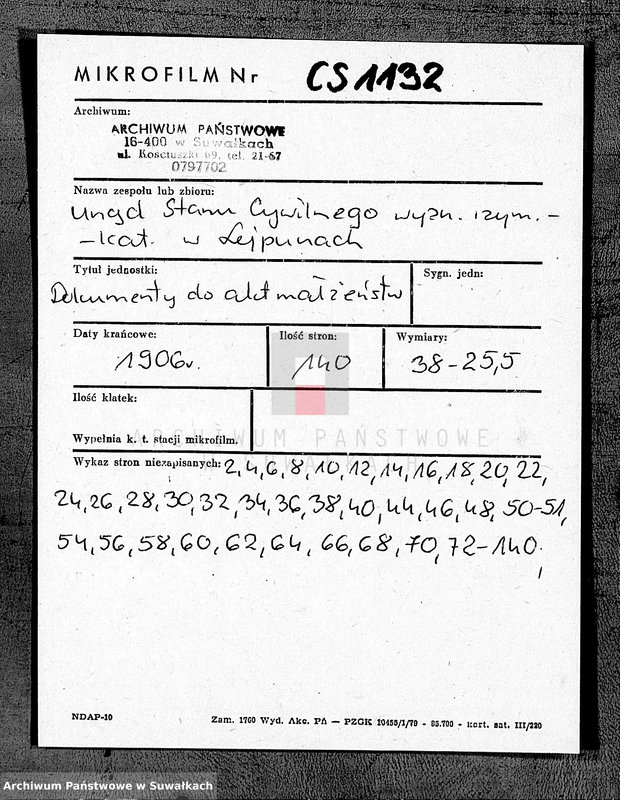 MIKROFILM Nr CS 1132
Archiwum:
ARCHIWUM PAŃSTWOWE
16-400 w Suwałkach
ul. Kościuszki 69, tel. 21-67
0797702
Nazwa zespołu lub zbioru:
Urząd Stanu Cywilnego wyzn. rzym.-
-kat. w Lejpunach
Tytuł jednostki:
Sygn. jedn:
Dokumenty do akt małżeństw
Daty krańcowe:
Ilość stron:
Wymiary:
1906r.
140
38-25,5
Ilość klatek:
Wypełnia k. t. stacji mikrofilm.
ARCHIWUM PAŃSTWOWE
W SUWAŁKACH
Wykaz stron niezapisanych: 2,4,6,8,10,12,14,16,18,20,22,
24,26,28,30,32,34,36,38,40,44,46,48,50-51,
54,56,58,60,62,64,66,68,70,72-140.
NDAP-10
Zam. 1760 Wyd. Akc. PŃ — PZGK 10455/I/79 - 85.700 - kart. sat. III/220
Archiwum Państwowe w Suwałkach